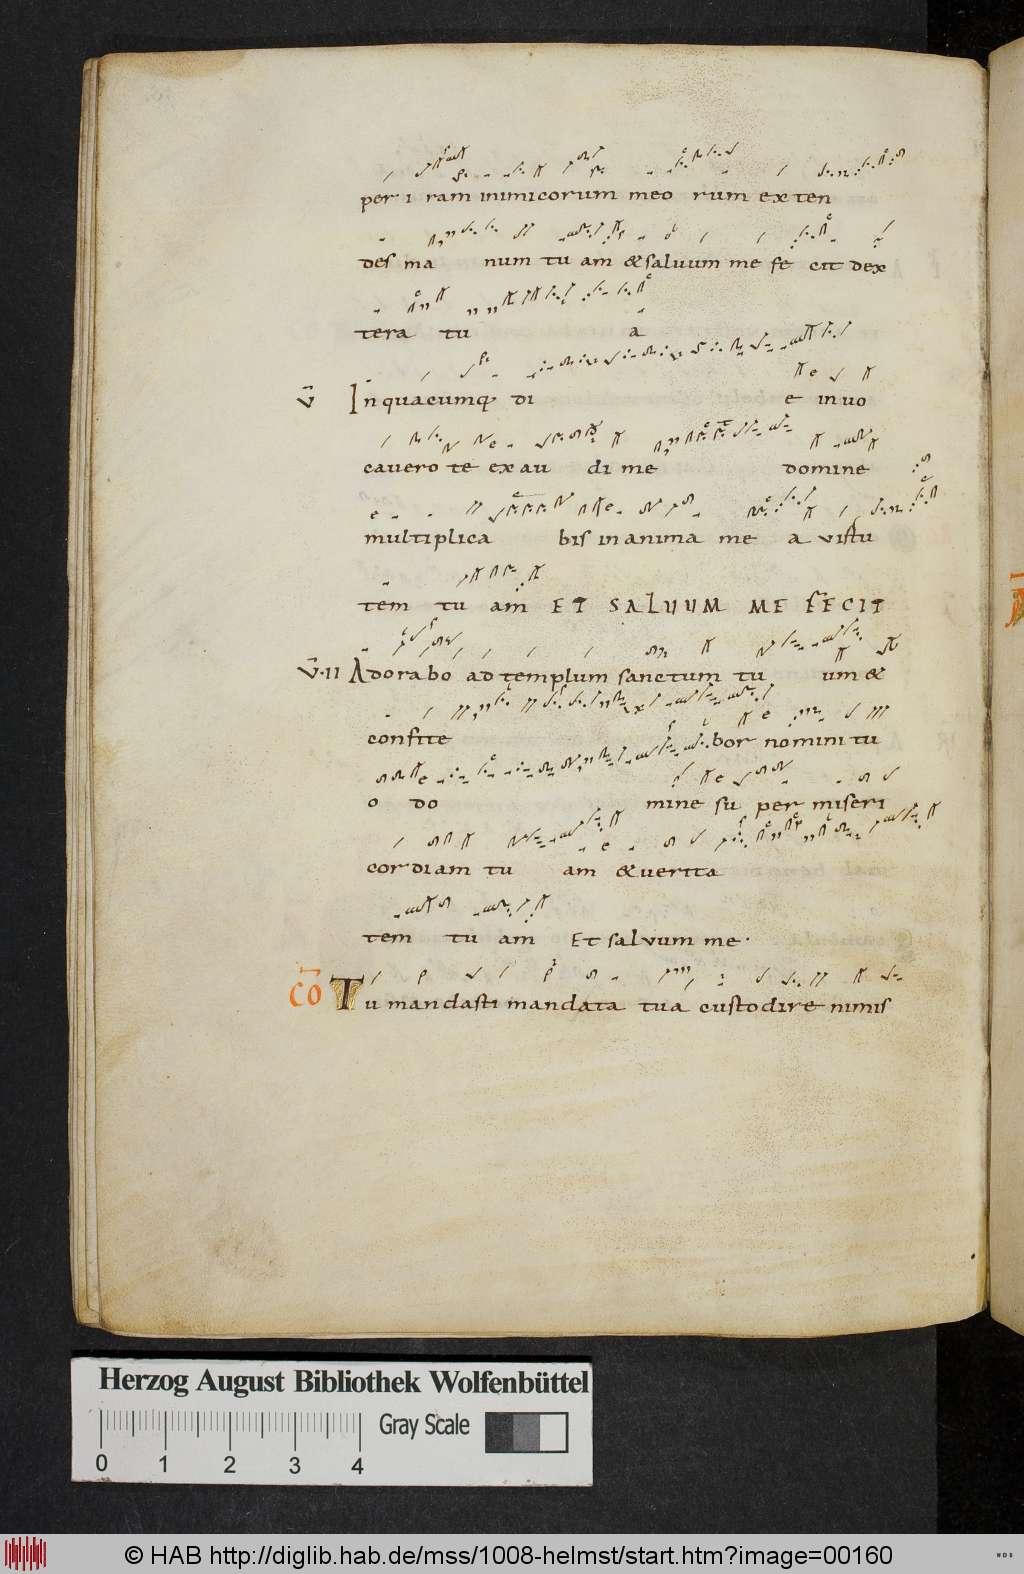 per i ram inimicorum meo rum ex ten
des ma num tu am & saluum me fe cit dex
tera tu a
V̄ In quacumq; di e inuo
cauero te ex au di me domine
multiplica bis in anima me a virtu
tem tu am ET SALUUM ME FECIT
V̄·II Adorabo ad templum sanctum tu um &
confite bor nomini tu
o do mine su per miseri
cordiam tu am & uerita
tem tu am Et salvum me·
CŌ Tu mandasti mandata tua custodire nimis
Herzog August Bibliothek Wolfenbüttel
Gray Scale
0 1 2 3 4
© HAB http://diglib.hab.de/mss/1008-helmst/start.htm?image=00160